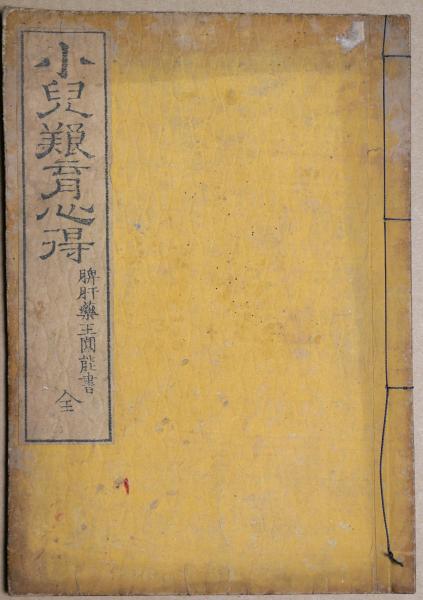 小兒艱育心得
脾肝藥王圓能書
全